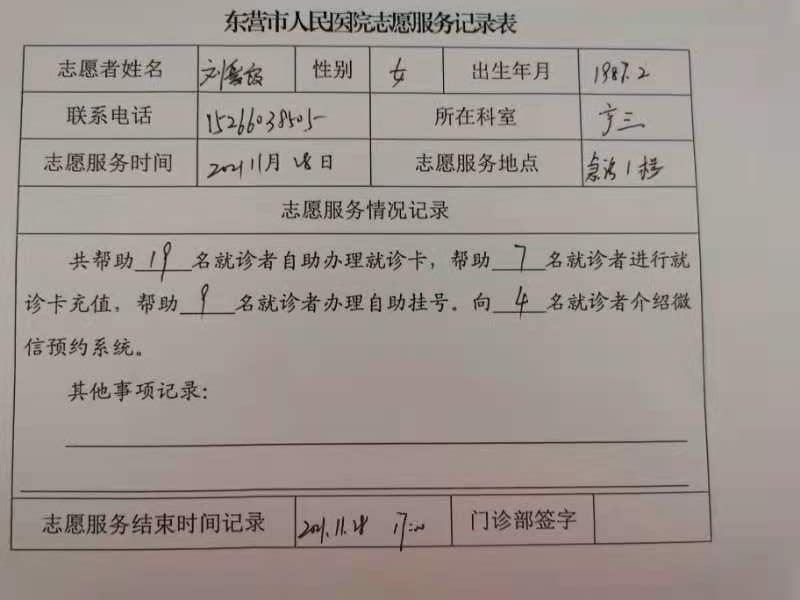 东营市人民医院志愿服务记录表
志愿者姓名 刘 性别 女 出生年月 1987.2
联系电话 15266038505 所在科室
志愿服务时间 2021 11月 28日 志愿服务地点 急诊1楼
志愿服务情况记录
共帮助19名就诊者自助办理就诊卡，帮助7名就诊者进行就
诊卡充值，帮助9名就诊者办理自助挂号。向4名就诊者介绍微
信预约系统。
其他事项记录：
志愿服务结束时间记录 2021.11.28 17:00 门诊部签字